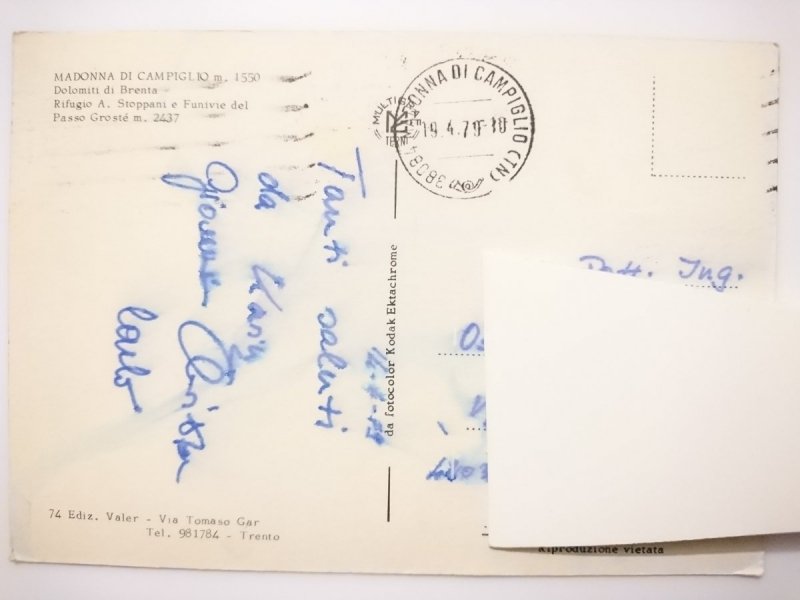 MADONNA DI CAMPIGLIO m. 1550
Dolomiti di Brenta
Rifugio A. Stoppani e Funivie del
Passo Grosté m. 2437
38084 MADONNA DI CAMPIGLIO (TN)
19.4.79-10
Tanti saluti
da
Giovanna
Carlo
da fotocolor Kodak Ektachrome
Dott. Ing.
74 Ediz. Valer - Via Tomaso Gar
Tel. 981784 - Trento
Riproduzione vietata